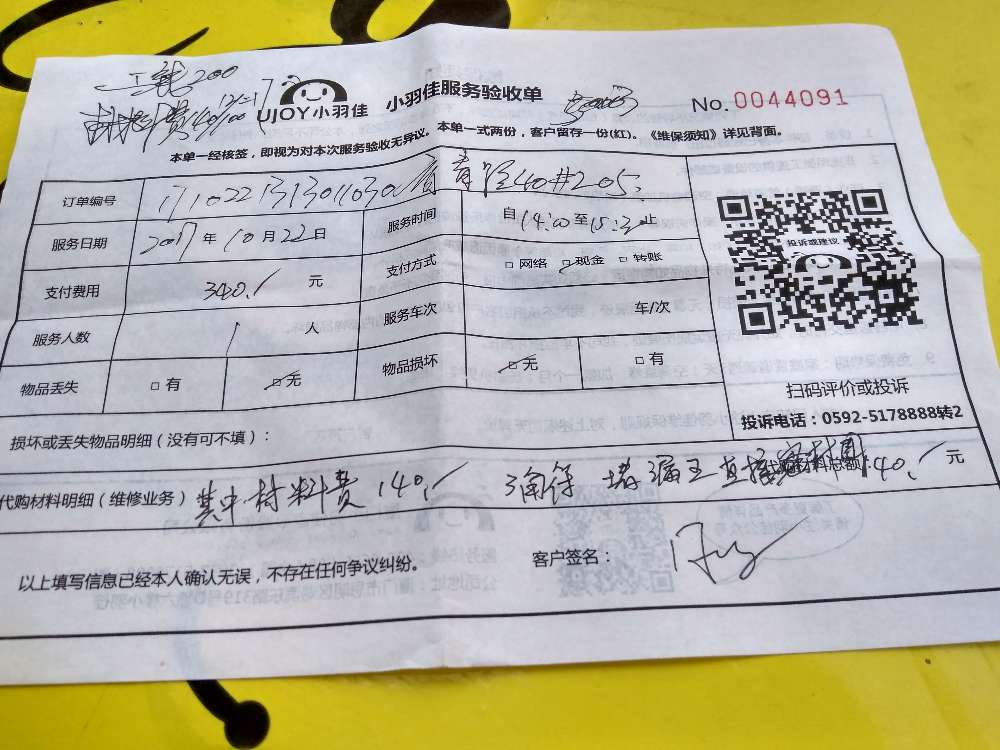 工钱200
材料费140/00
UJOY小羽佳 小羽佳服务验收单
No.0044091
本单一经核签，即视为对本次服务验收无异议。本单一式两份，客户留存一份(红)。《维保须知》详见背面。
订单编号
40#205
服务日期 2017年10月22日 服务时间 自14:00至15:30止
支付费用 340./元 支付方式 □网络 □现金 □转账
服务人数 1人 服务车次 车/次
物品丢失 □有 □无 物品损坏 □无 □有
投诉或建议
扫码评价或投诉
投诉电话：0592-5178888转2
损坏或丢失物品明细（没有可不填）：
代购材料明细（维修业务）其中材料费140./ 堵漏王直接 代购材料总额:140./元
以上填写信息已经本人确认无误，不存在任何争议纠纷。 客户签名：